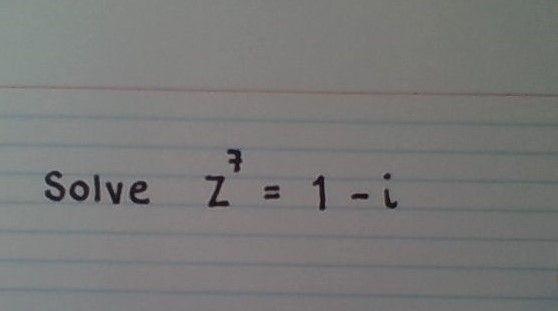 Solve z⁷ = 1 - i